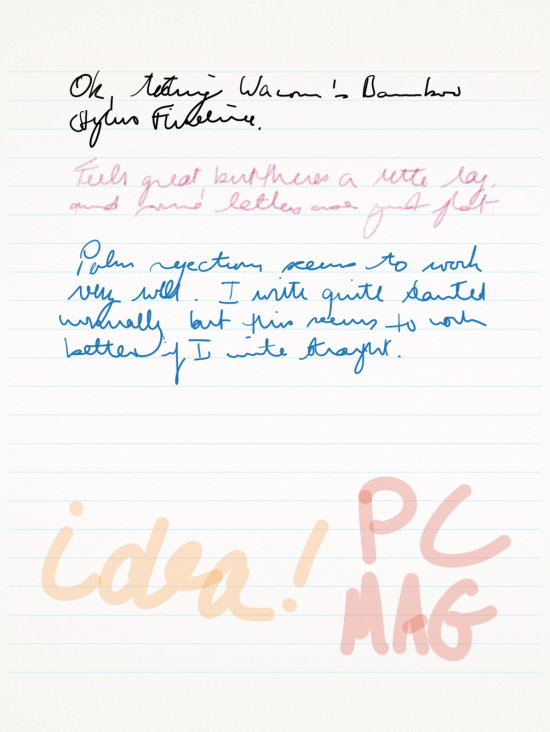 Ok, testing Wacom's Bamboo
Stylus Fineline.
Feels great but theres a little lag,
and some letters are just flat.
Palm rejection seems to work
very well. I write quite slanted
normally but this seems to work
better if I write straight.
idea!
PC
MAG